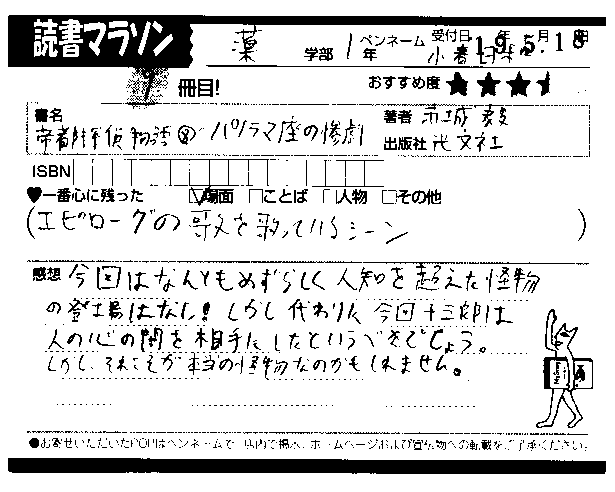 読書マラソン
薬 学部 1年 ペンネーム 小春日和 受付日 19年5月18日
9 冊目! おすすめ度 ★★★
書名 帝都探偵物語④ パノラマ座の惨劇
著者 赤城毅
出版社 光文社
ISBN
♥一番心に残った ☑場面 □ことば □人物 □その他
(エピローグの歌を歌っているシーン)
感想 今回はなんともめずらしく人知を超えた怪物
の登場はなし!しかし代わりに今回十三郎は
人の心の闇を相手にしたというべきでしょう。
しかし、それこそが本当の怪物なのかもしれません。
●お寄せいただいたPOPはペンネームで 店内で掲示、ホームページおよび宣伝物への転載をご了承ください。